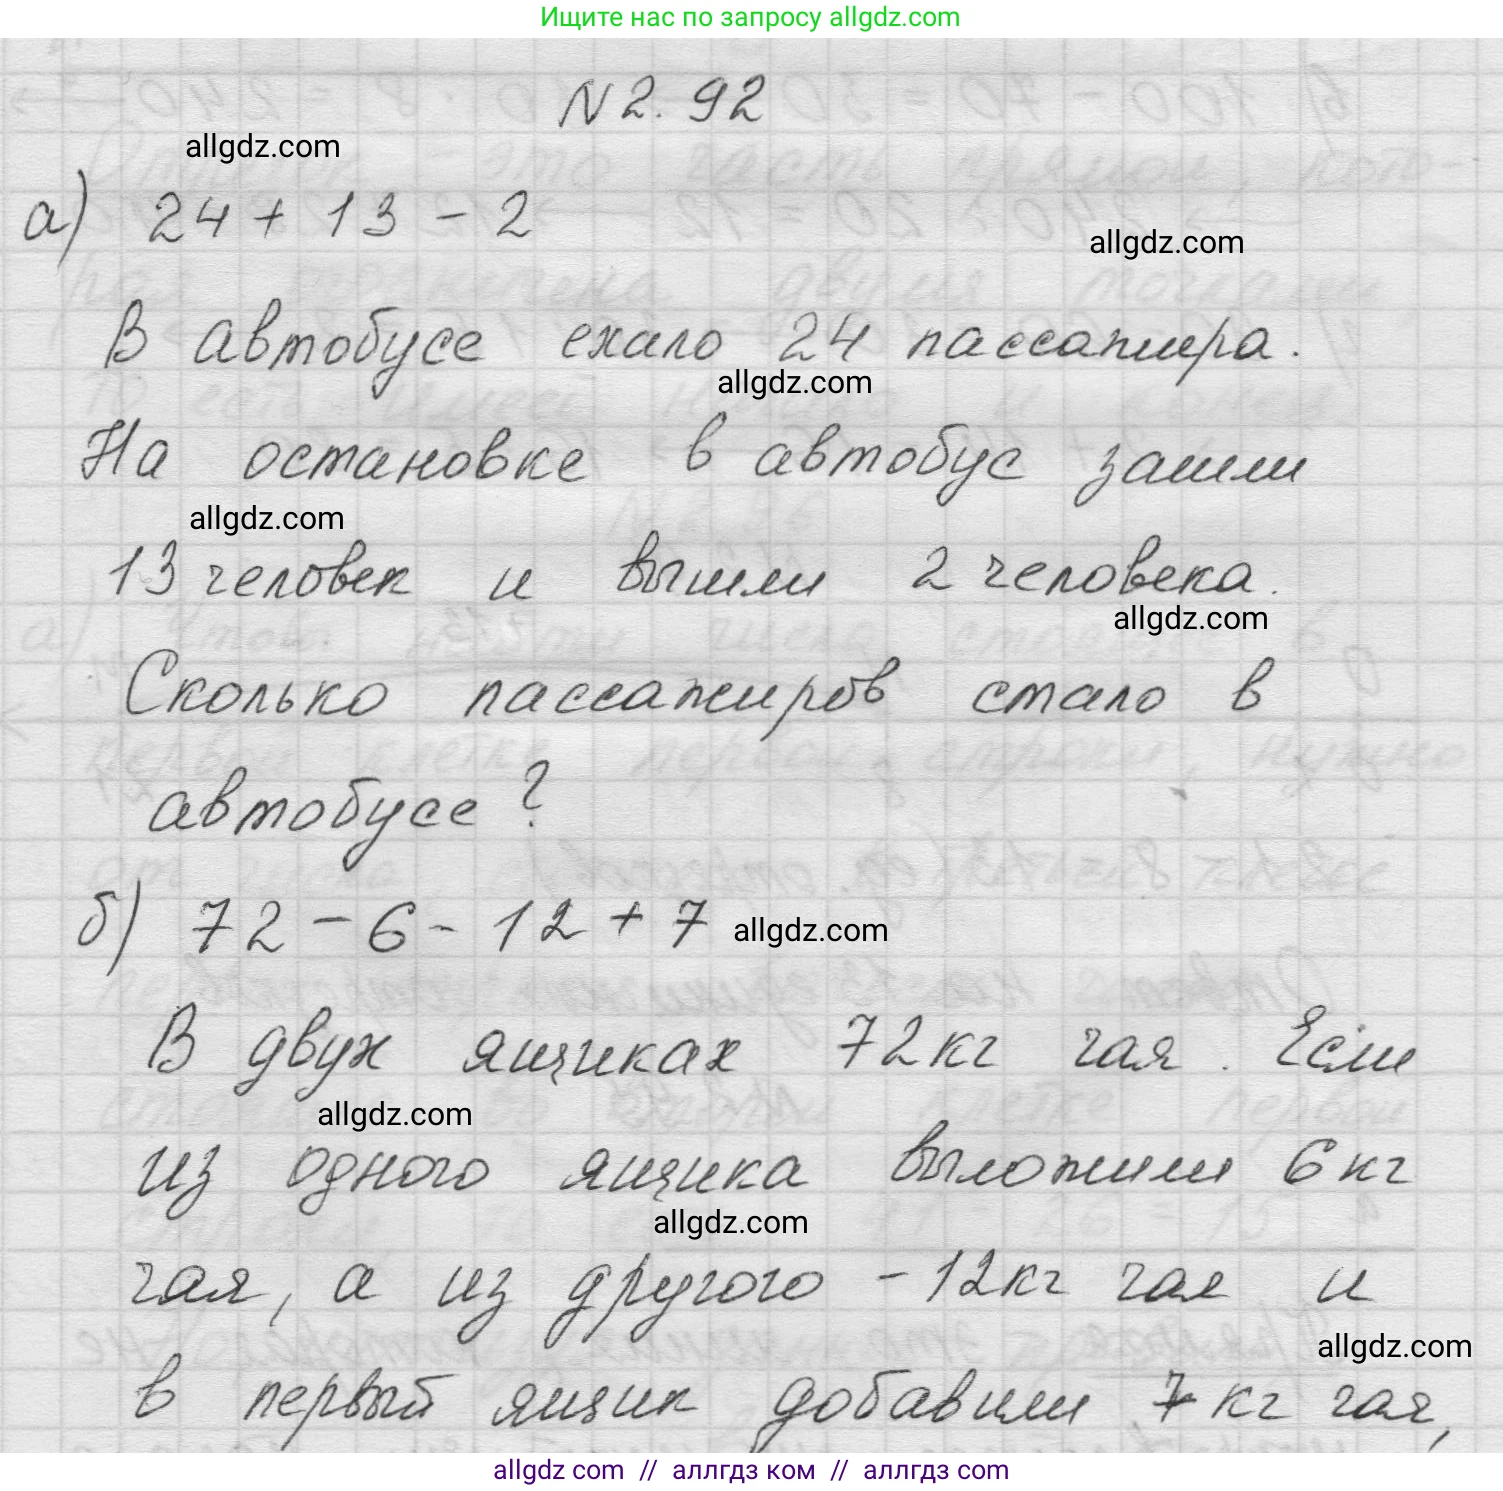 Ищите нас по запросу allgdz.com
N 2. 92
allgdz.com
а) 24 + 13 - 2
allgdz.com
В автобусе ехало 24 пассажира.
allgdz.com
На остановке в автобус зашли
allgdz.com
13 человек и вышли 2 человека.
allgdz.com
Сколько пассажиров стало в
автобусе?
б) 72 - 6 - 12 + 7 allgdz.com
В двух ящиках 72 кг чая. Если
allgdz.com
из одного ящика выложили 6 кг
allgdz.com
чая, а из другого - 12 кг чая и
allgdz.com
в первый ящик добавили 7 кг чая,
allgdz com // аллгдз ком // allgdz com